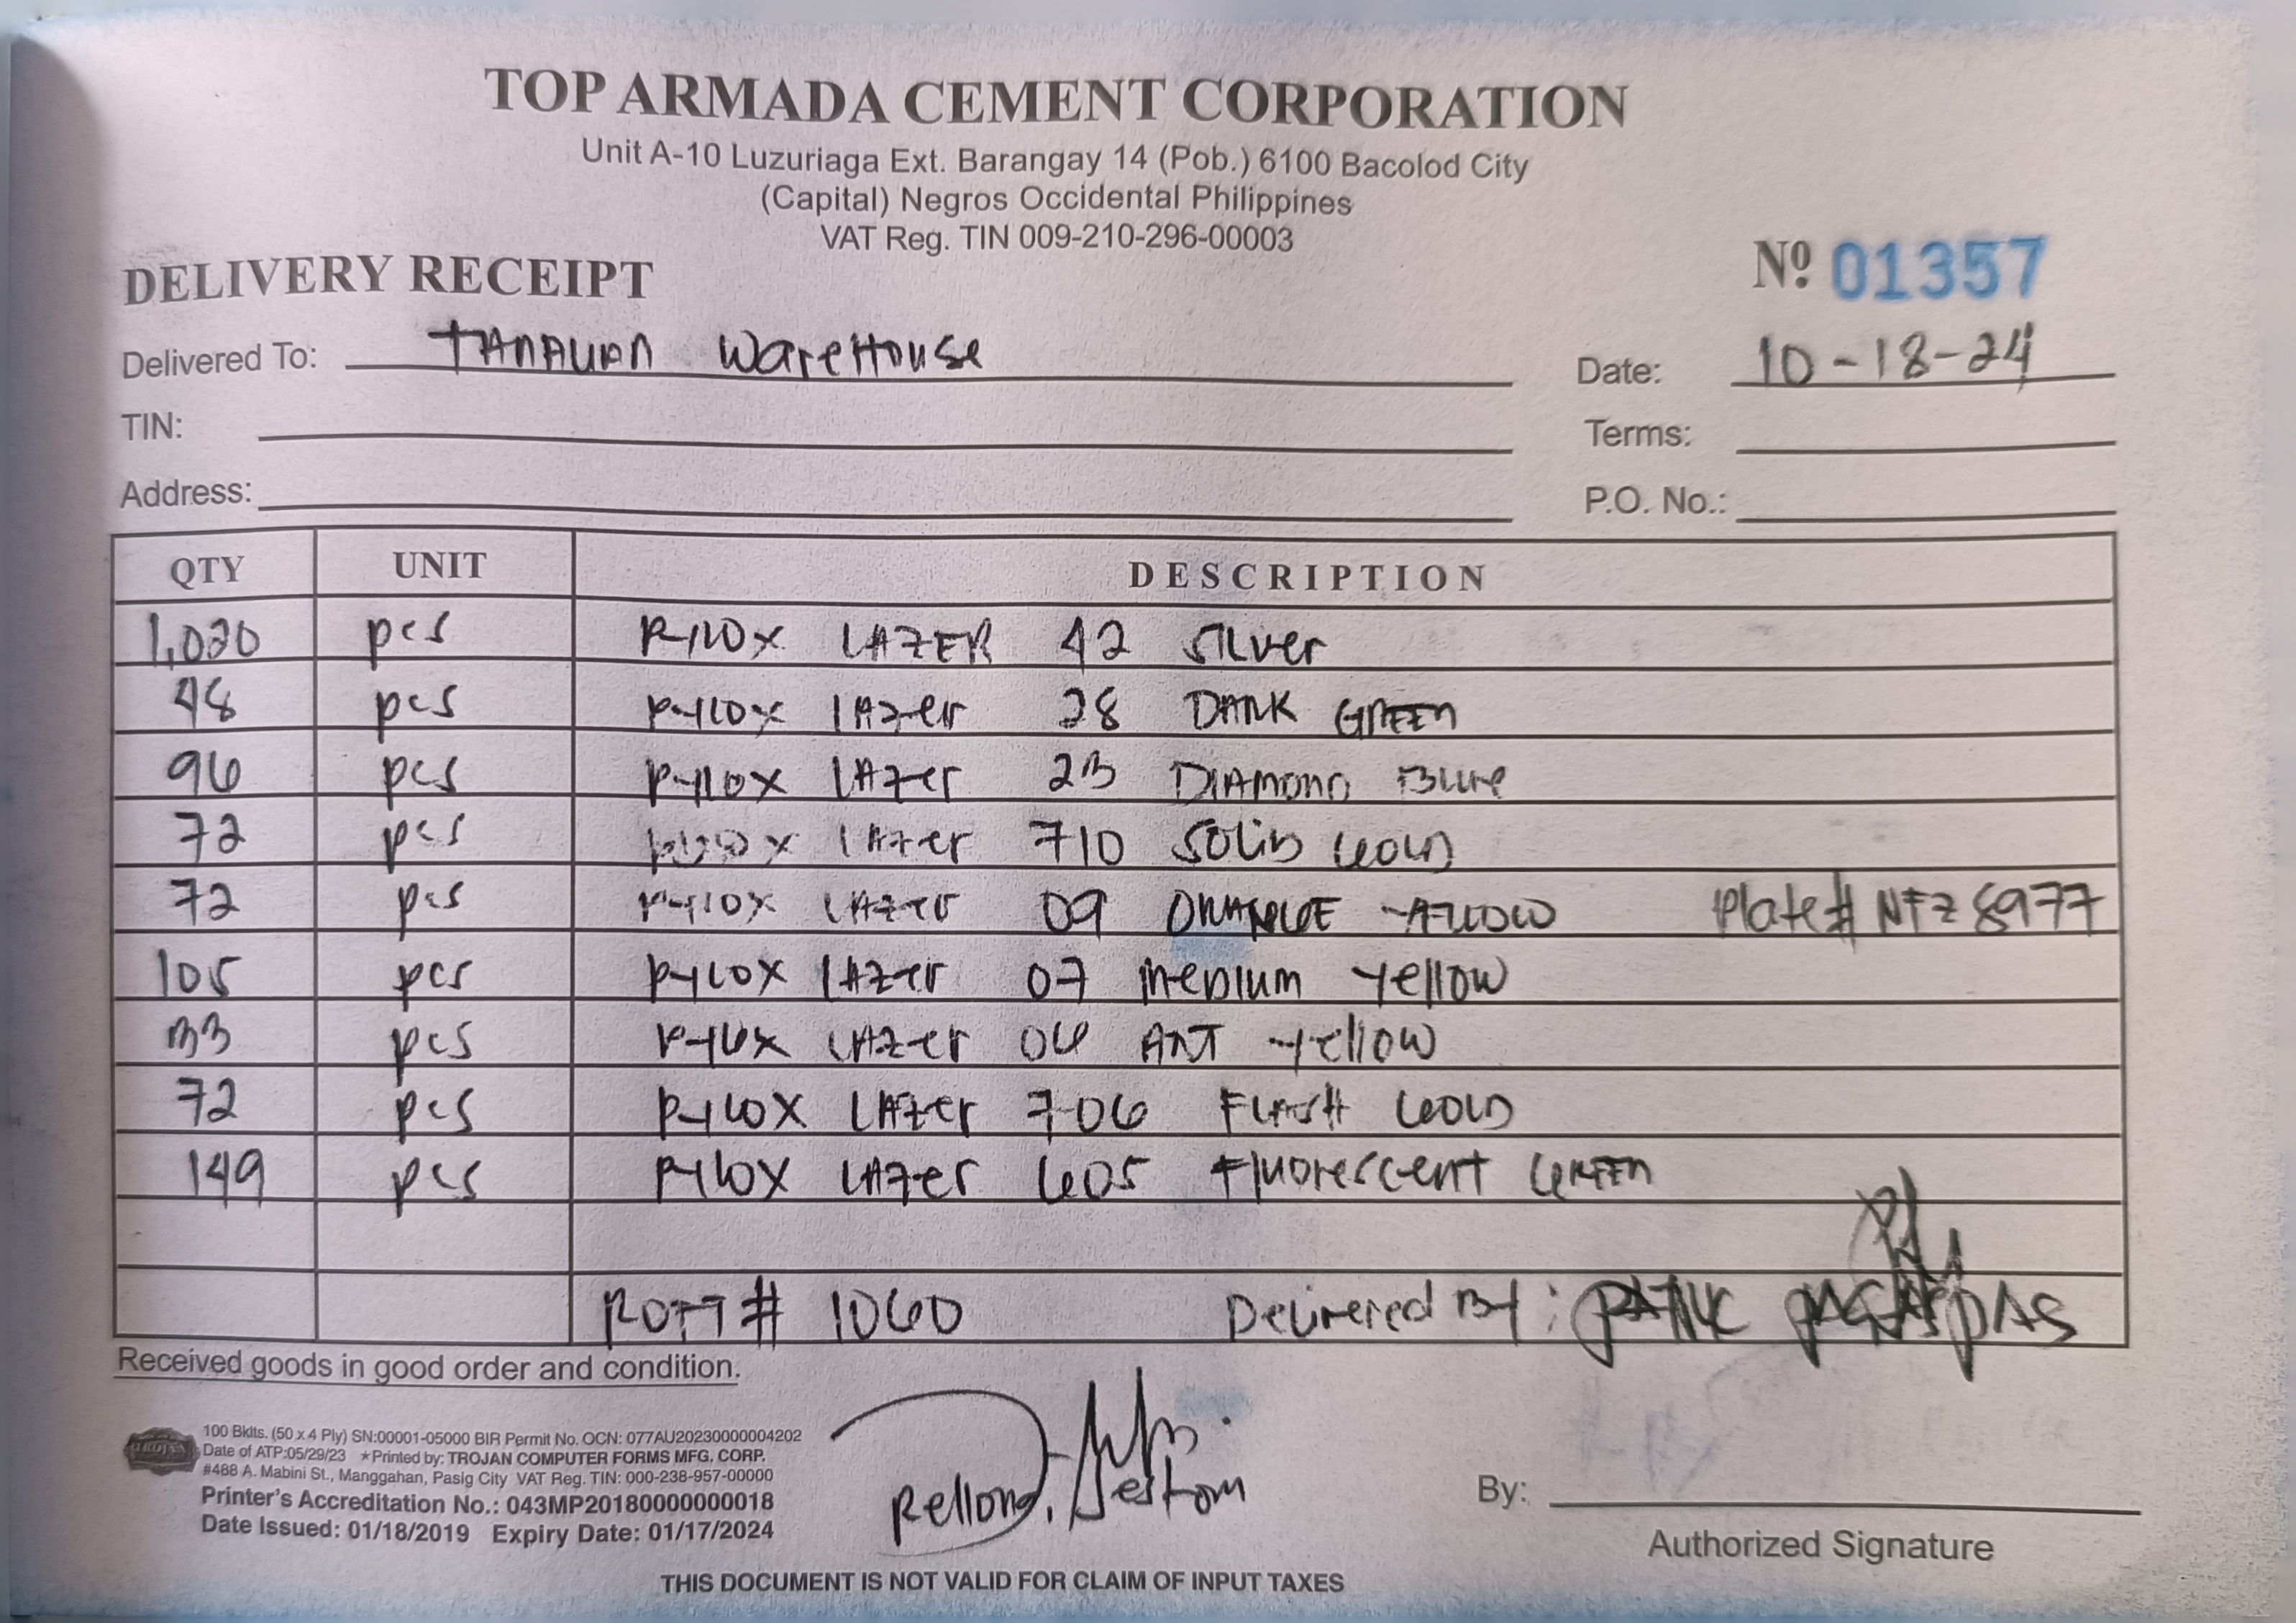 TOP ARMADA CEMENT CORPORATION
Unit A-10 Luzuriaga Ext. Barangay 14 (Pob.) 6100 Bacolod City
(Capital) Negros Occidental Philippines
VAT Reg. TIN 009-210-296-00003
DELIVERY RECEIPT
Nº 01357
Delivered To: TANAUAN WareHouse
Date: 10-18-24
TIN:
Terms:
Address:
P.O. No.:
QTY UNIT DESCRIPTION
1,020 pcs PYLOX LAZER 42 Silver
48 pcs PYLOX lAzer 28 DARK GREEN
96 pcs PYLOX LAzer 23 DIAMOND Blue
72 pcs PYLOX LAzer 710 SOLID GOLD
72 pcs PYLOX LAzer 09 ORANGE Plate# NFZ 8977
105 pcs PYLOX LAzer 07 MEDIUM Yellow
33 pcs PYLOX LAzer 06 ANT Yellow
72 pcs PYLOX LAzer 706 FLASH GOLD
149 pcs PYLOX LAzer 605 Fluorescent GREEN
# 1060 Delivered By:
Received goods in good order and condition.
TROJAN
100 Bklts. (50 x 4 Ply) SN:00001-05000 BIR Permit No. OCN: 077AU20230000004202
Date of ATP:05/29/23 ★Printed by: TROJAN COMPUTER FORMS MFG. CORP.
#488 A. Mabini St., Manggahan, Pasig City VAT Reg. TIN: 000-238-957-00000
Printer's Accreditation No.: 043MP20180000000018
Date Issued: 01/18/2019 Expiry Date: 01/17/2024
By:
Authorized Signature
THIS DOCUMENT IS NOT VALID FOR CLAIM OF INPUT TAXES